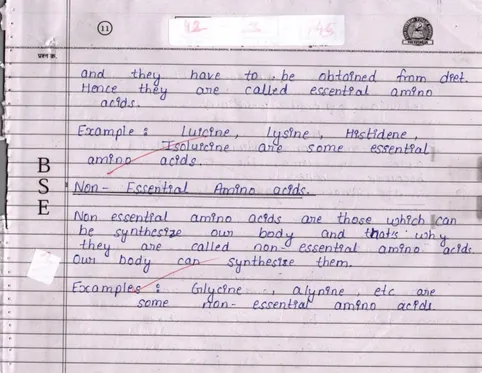 11
92 3 95
प्रश्न क्र.
and they have to be obtained from diet.
Hence they are called essential amino
acids.
Example : Luicine, lysine, Histidene,
Isoluicine are some essential
amino acids.
BSE
Non - Essential Amino acids.
Non essential amino acids are those which can
be synthesize our body and that's why
they are called non- essential amino acids.
Our body can synthesise them.
Examples : Glycine, alynine, etc are
some non- essential amino acids